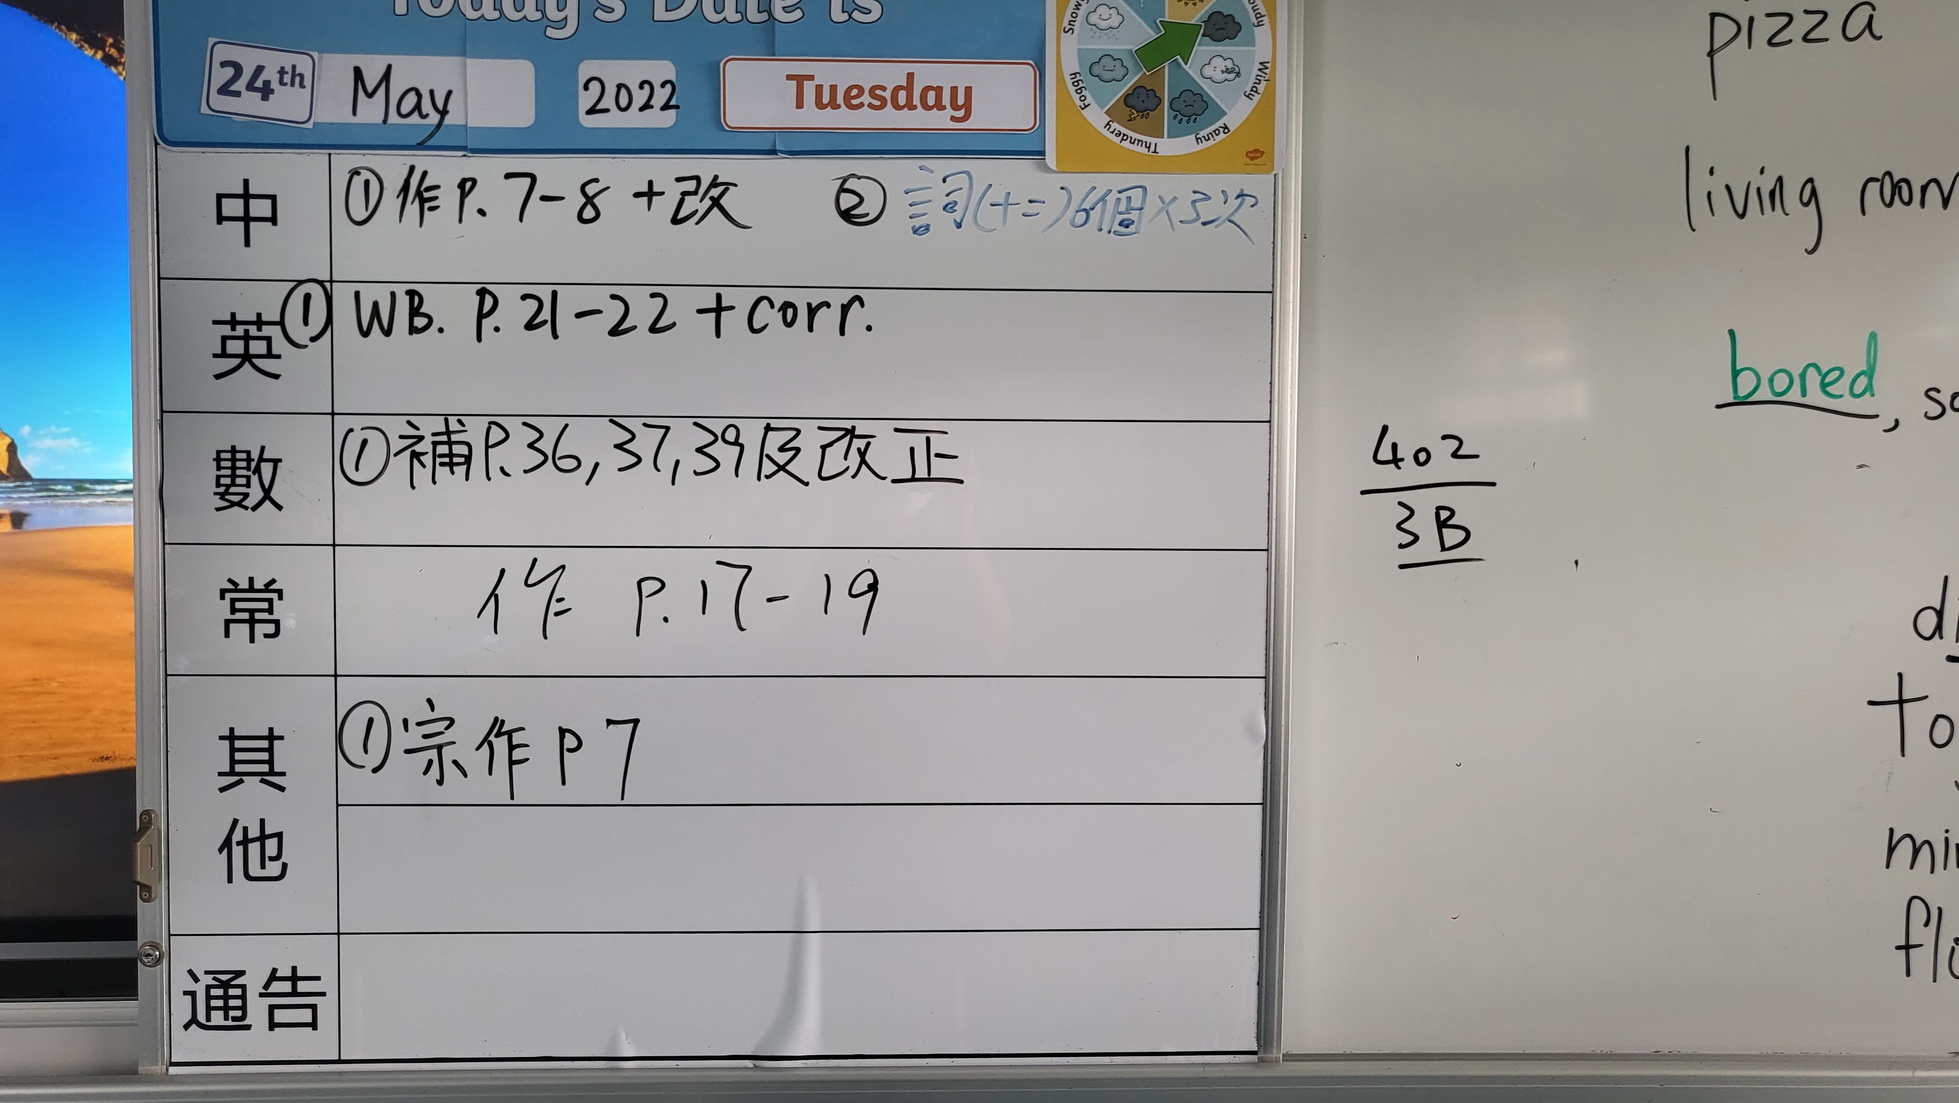 Today's Date is
24th May 2022 Tuesday
Snowy
Windy
Rainy
Thundery
Foggy
中 ①作P. 7-8 +改 ② 詞(十二)6個×3次
英 ① WB. P. 21-22 + corr.
數 ①補P.36, 37, 39及改正
常 作 P. 17-19
其他 ①宗作P7
通告
402
3B
pizza
living room
bored,